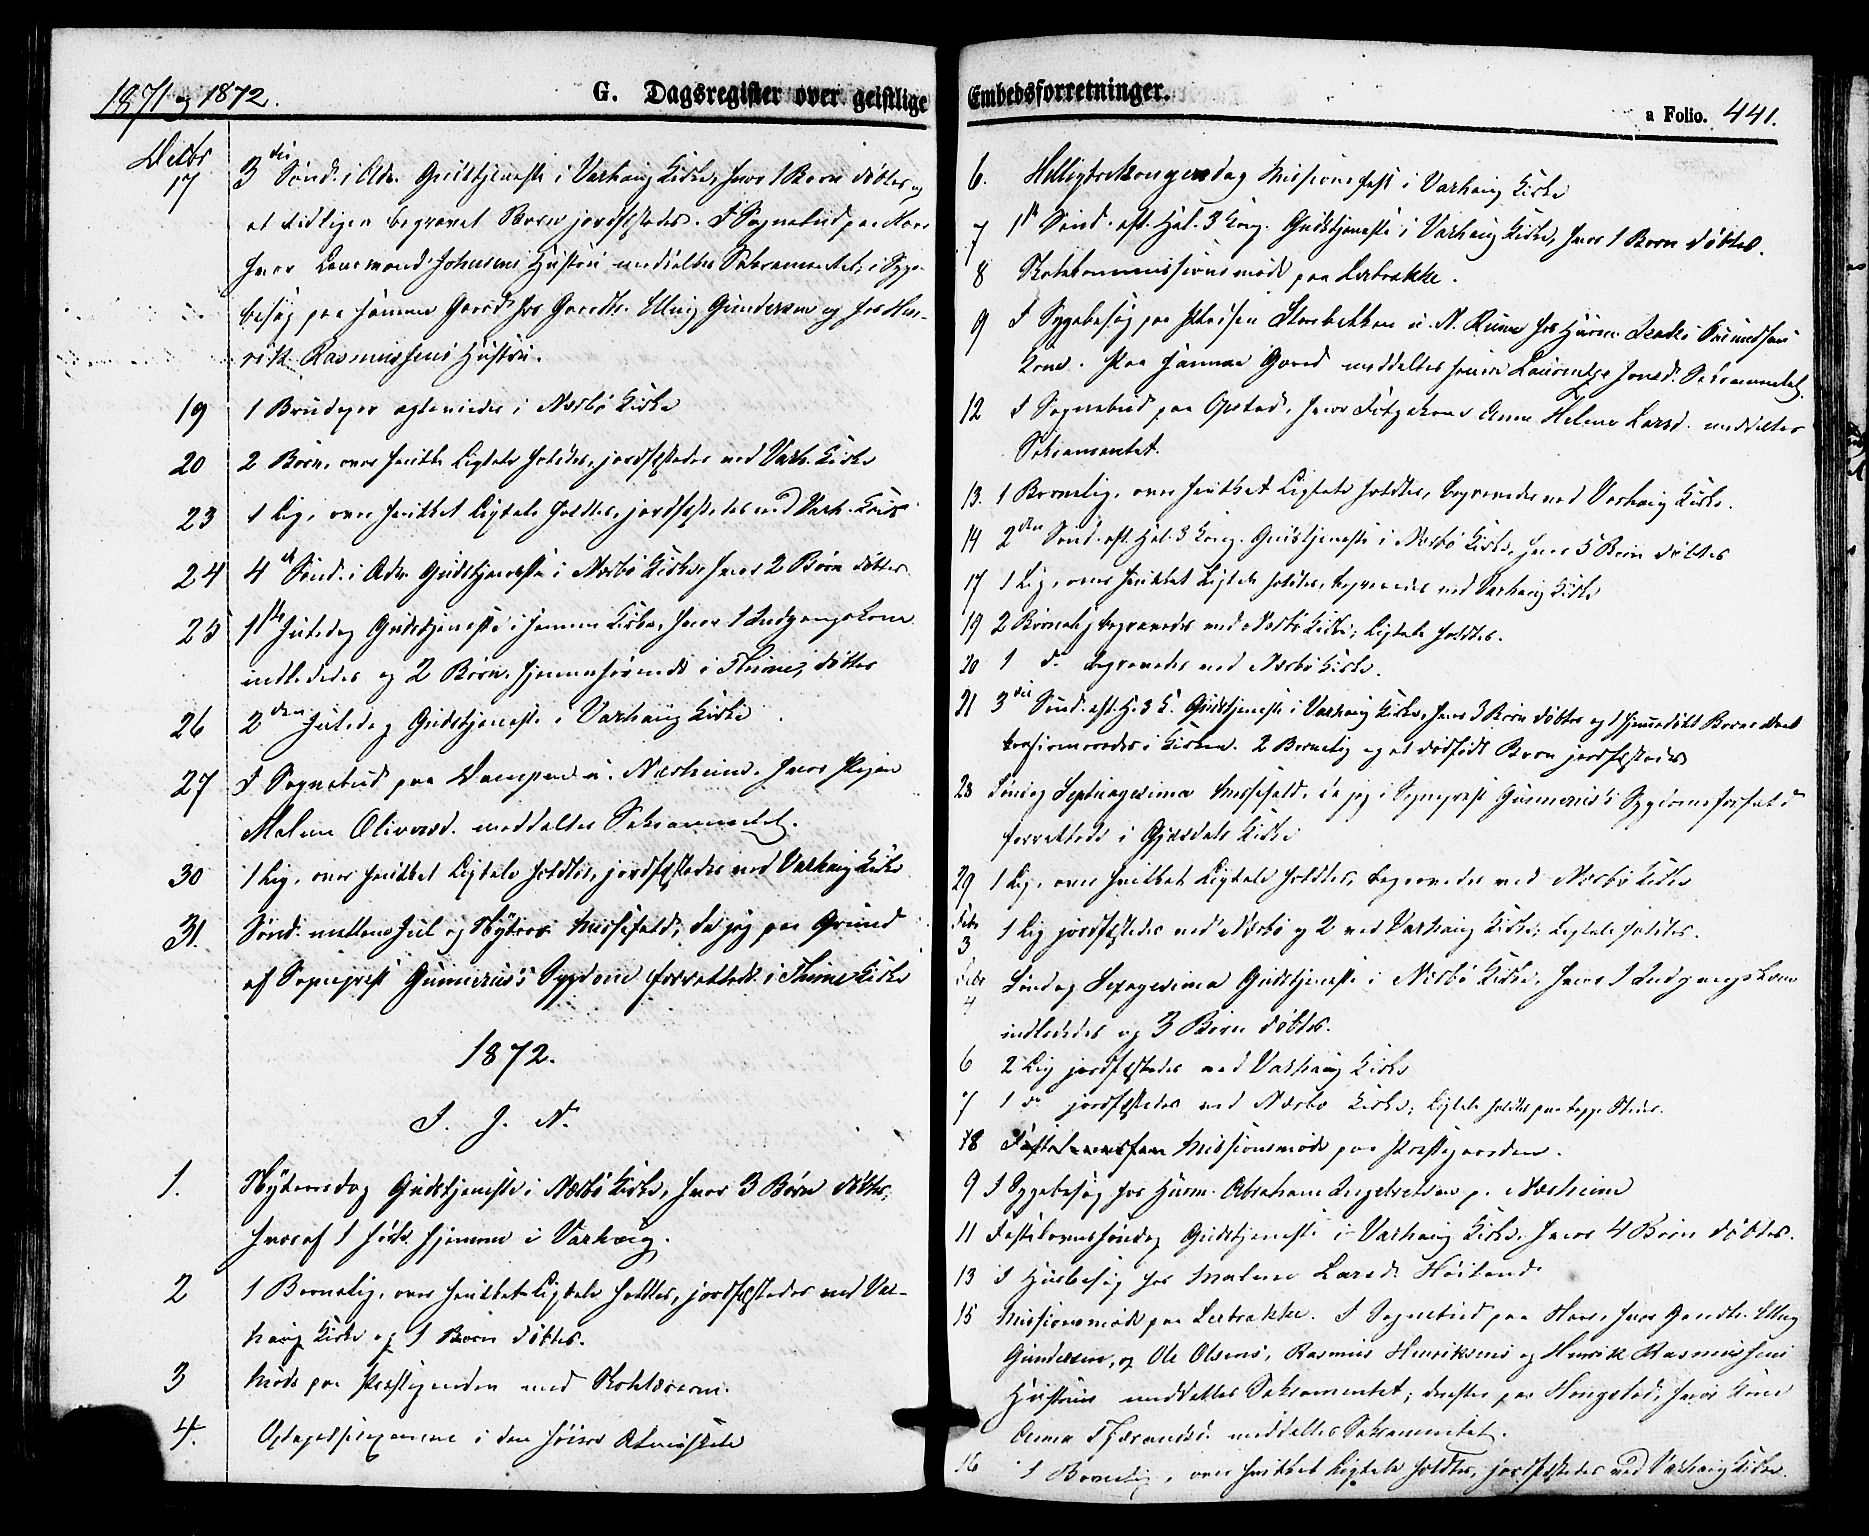 1871 og 1872.
G. Dagsregister over geistlige
Decbr
17 3die Sønd. i Adv. Gudstjeneste i Varhaug Kirke, hvor 1 Barn døbtes og
et tidligere begravet Barn jordfæstedes. I Sognebud paa Haar
hvor Hustru meddeltes Sakramentet, i Syge-
besøg paa samme Gaard hos Gaardbr. Elling Gundersen og hos Hen-
rik Rasmussens Hustru.
19 1 Brudepar ægteviedes i Nærbø Kirke
20 2 Børn, over hvilke Ligtale holdtes, jordfæstedes ved Varh. Kirke
23 1 Lig, over hvilket Ligtale holdtes, jordfæstedes ved Varh. Kirke
24 4de Sønd. i Adv. Gudstjeneste i Nærbø Kirke, hvor 2 Børn døbtes,
25 1ste Juledag Gudstjeneste i samme Kirke, hvor 1 Indgangskone
indlededes og 2 Børn, hjemmehørende i Thime, døbtes
26 2den Juledag Gudstjeneste i Varhaug Kirke
27 I Sognebud paa u. Nærheim, hvor Pigen
Malene Oliversd. meddeltes Sakramentet.
30 1 Lig, over hvilket Ligtale holdtes, jordfæstedes ved Varhaug Kirke
31. Sønd. mellem Jul og Nytaar Messefald, da jeg paa Grund
af Sogneprest Gunnerus's Sygdom forrettede i Thime Kirke
1872.
I. J. N.
1. Nytaarsdag Gudstjeneste i Nærbø Kirke, hvor 3 Børn døbtes,
hvoraf 1 hjemme i Varhaug.
2 1 Barnelig, over hvilket Ligtale holdtes, jordfæstedes ved Var-
haug Kirke og 1 Barn døbtes.
3 Møde paa Præstegaarden med Skolelærerne.
4. Optagelsesexamen i den høiere Almueskole
Embedsforretninger.
a Folio. 441.
6. Helligtrekongersdag Missionsfest i Varhaug Kirke
7 1ste Sønd. eft. Hel. 3 Kong. Gudstjeneste i Varhaug Kirke, hvor 1 Barn døbtes.
8 Skolekommissionsmøde paa Lerbrække.
9 I Sygebesøg paa Pladsen Storbekken u. N. hos Huusm.
Kone. Paa samme Gaard meddeltes Sakramentet.
12 I Sognebud paa Opstad, hvor Anna Helene Larsd. meddeltes
Sakramentet.
13. 1 Barnelig, over hvilket Ligtale holdtes, begravedes ved Varhaug Kirke.
14 2den Sønd. eft. Hel. 3 Kong. Gudstjeneste i Nærbø Kirke, hvor 5 Børn døbtes
17 1 Lig, over hvilket Ligtale holdtes, begravedes ved Varhaug Kirke
19 2 Børnelig begravedes ved Nærbø Kirke; Ligtale holdtes.
20 1 do begravedes ved Nærbø Kirke.
21 3die Sønd. eft. H. 3 K. Gudstjeneste i Varhaug Kirke, hvor 3 Børn døbtes og 1 hjemmedøbt Barns Daab
konfirmeredes i Kirken. 2 Barnelig og et dødfødt Barn jordfæstedes
28 Søndag Septuagesima Messefald, da jeg i Sogneprest Gunnerus's Sygdomsforfald
forrettede i Gjesdals Kirke
29 1 Lig, over hvilket Ligtale holdtes, begravedes ved Nærbø Kirke
Febr
3 1 Lig jordfæstedes ved Nærbø og 2 ved Varhaug Kirke; Ligtale holdtes.
Febr
4 Søndag Sexagesima Gudstjeneste i Nærbø Kirke, hvor 1 Indgangskone
indlededes og 3 Børn døbtes.
6 2 Lig jordfæstedes ved Varhaug Kirke
7 1 do jordfæstedes ved Nærbø Kirke; Ligtale holdtes paa begge Steder.
8 Missionsmøde paa Præstegaarden.
9 I Sygebesøg hos Huusm. Abraham Ingebretsen p. Nærheim
11 Fastelavnssøndag Gudstjeneste i Varhaug Kirke, hvor 4 Børn døbtes.
13 I Husbesøg hos Malene Larsd. Høiland
15 Missionsmøde paa Lerbrække. I Sognebud paa Haar, hvor Gaardbr. Elling
Gundersen, og Ole Olsens, Rasmus Henriksens og Henrik Rasmussens
Hustruer meddeltes Sakramentet; derefter paa Hongstad, hvor Kone
Anna meddeltes Sakramentet.
16 1 Barnelig, over hvilket Ligtale holdtes, jordfæstedes ved Varhaug Kirke.